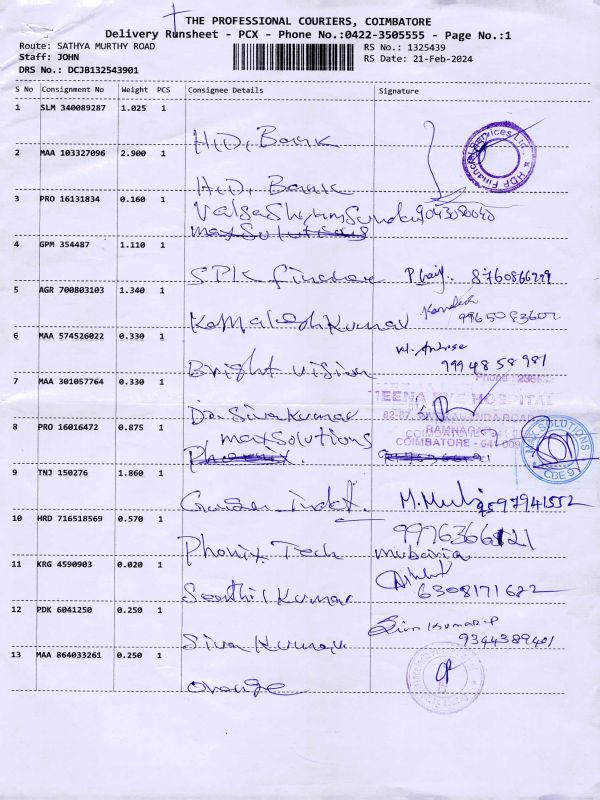 THE PROFESSIONAL COURIERS, COIMBATORE
Delivery Runsheet - PCX - Phone No.:0422-3505555 - Page No.:1
Route: SATHYA MURTHY ROAD RS No.: 1325439
Staff: JOHN RS Date: 21-Feb-2024
DRS No.: DCJB132543901
S No Consignment No Weight PCS Consignee Details Signature
1 SLM 340089287 1.025 1
H.D. Bank
HDF Financial Services Ltd.
2 MAA 103327096 2.900 1
H.D. Bank
3 PRO 16131834 0.160 1 ValsaShyamSundar
max Solutions
4 GPM 354487 1.110 1
SPK 8760866799
5 AGR 700803103 1.340 1
Kamalesh Kumar Kamalesh 9965083602
6 MAA 574526022 0.330 1
Bright vision 9994858981
7 MAA 301057764 0.330 1
Dr. Siva Kumar
HOSPITAL
RAMNAGAR
COIMBATORE - 641 009
max Solutions
8 PRO 16016472 0.875 1 Phoenix
MAX SOLUTIONS
CBE 9
9 TNJ 150276 1.860 1
Garden 9597941552
9976366121
10 HRD 716518569 0.570 1
Phonix Tech
11 KRG 4590903 0.020 1
Senthil Kumar 6308171622
12 PDK 6041250 0.250 1
Siva Kumar Siva Kumar P
9344389401
13 MAA 864033261 0.250 1
orange